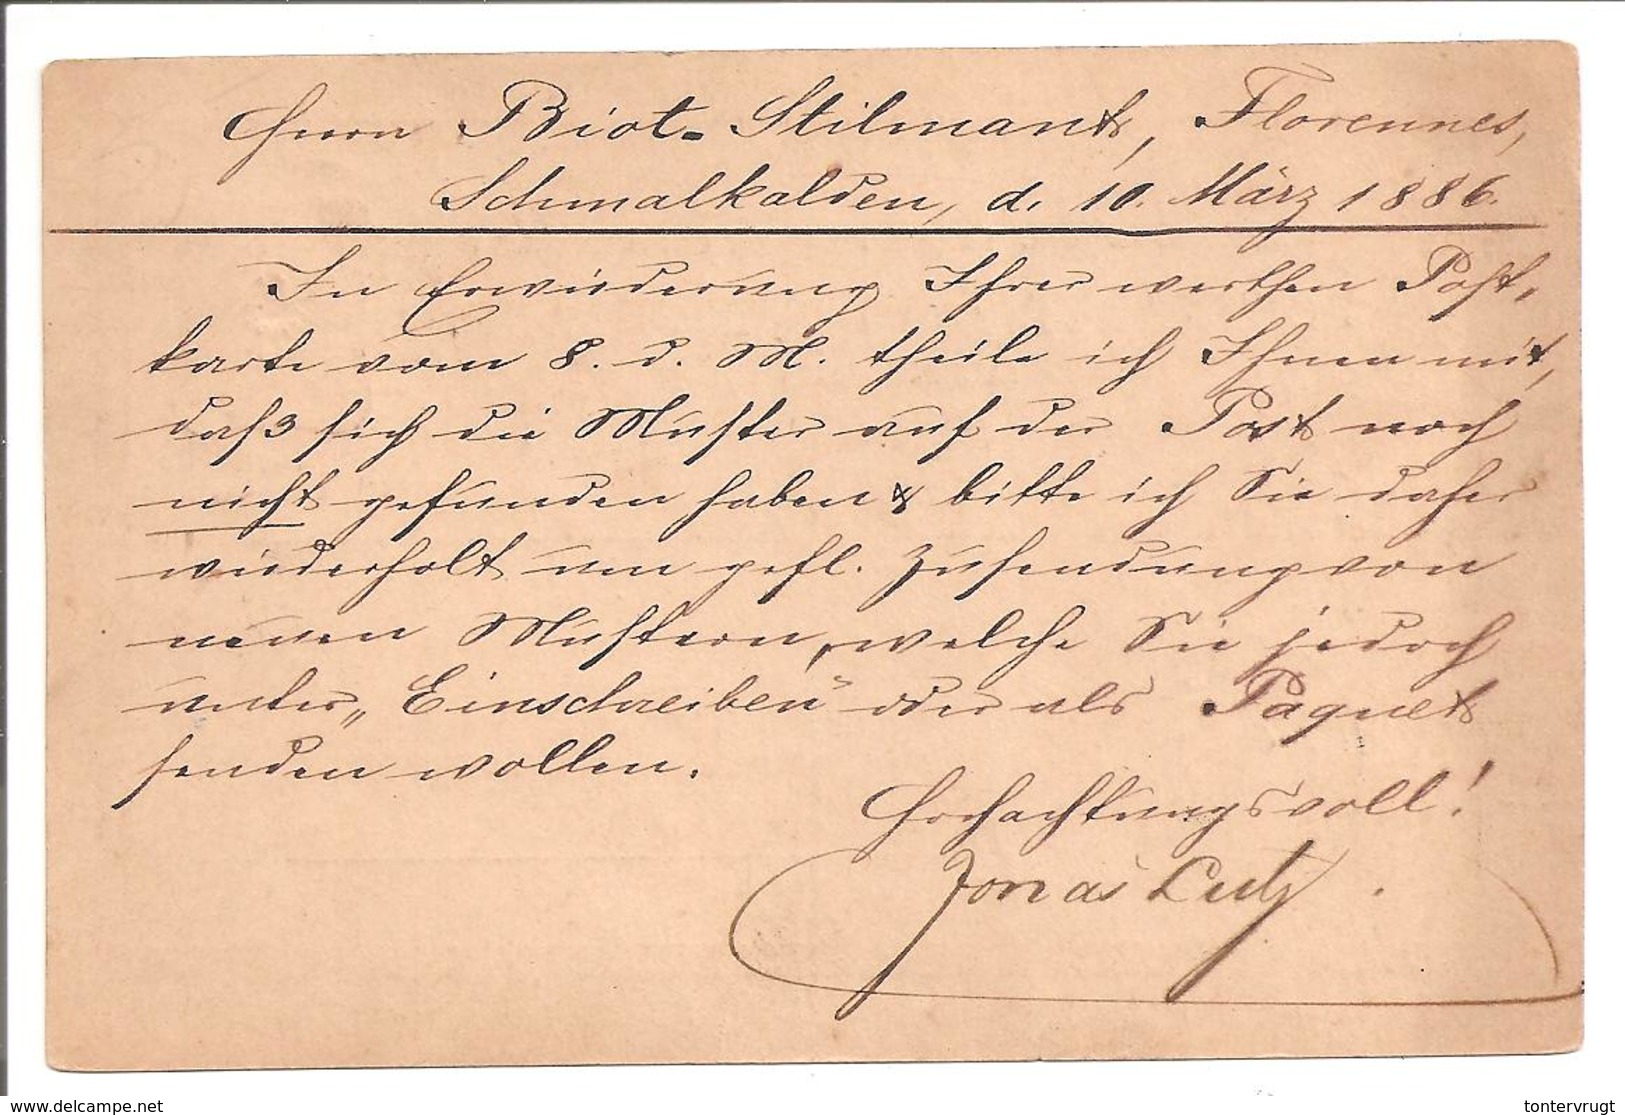 Herrn Biot-Stilmant, Florennes,
Schmalkalden, d. 10. März 1886.
In Erwiederung Ihrer werthen Post-
karte vom 8. d. M. theile ich Ihnen mit,
daß sich die Muster auf der Post noch
nicht gefunden haben & bitte ich Sie daher
wiederholt um gefl. Zusendung von
neuen Mustern, welche Sie jedoch
unter „Einschreiben" oder als Paquet
senden wollen.
Hochachtungsvoll!
Jonas Lutz
www.delcampe.net
tontervrugt